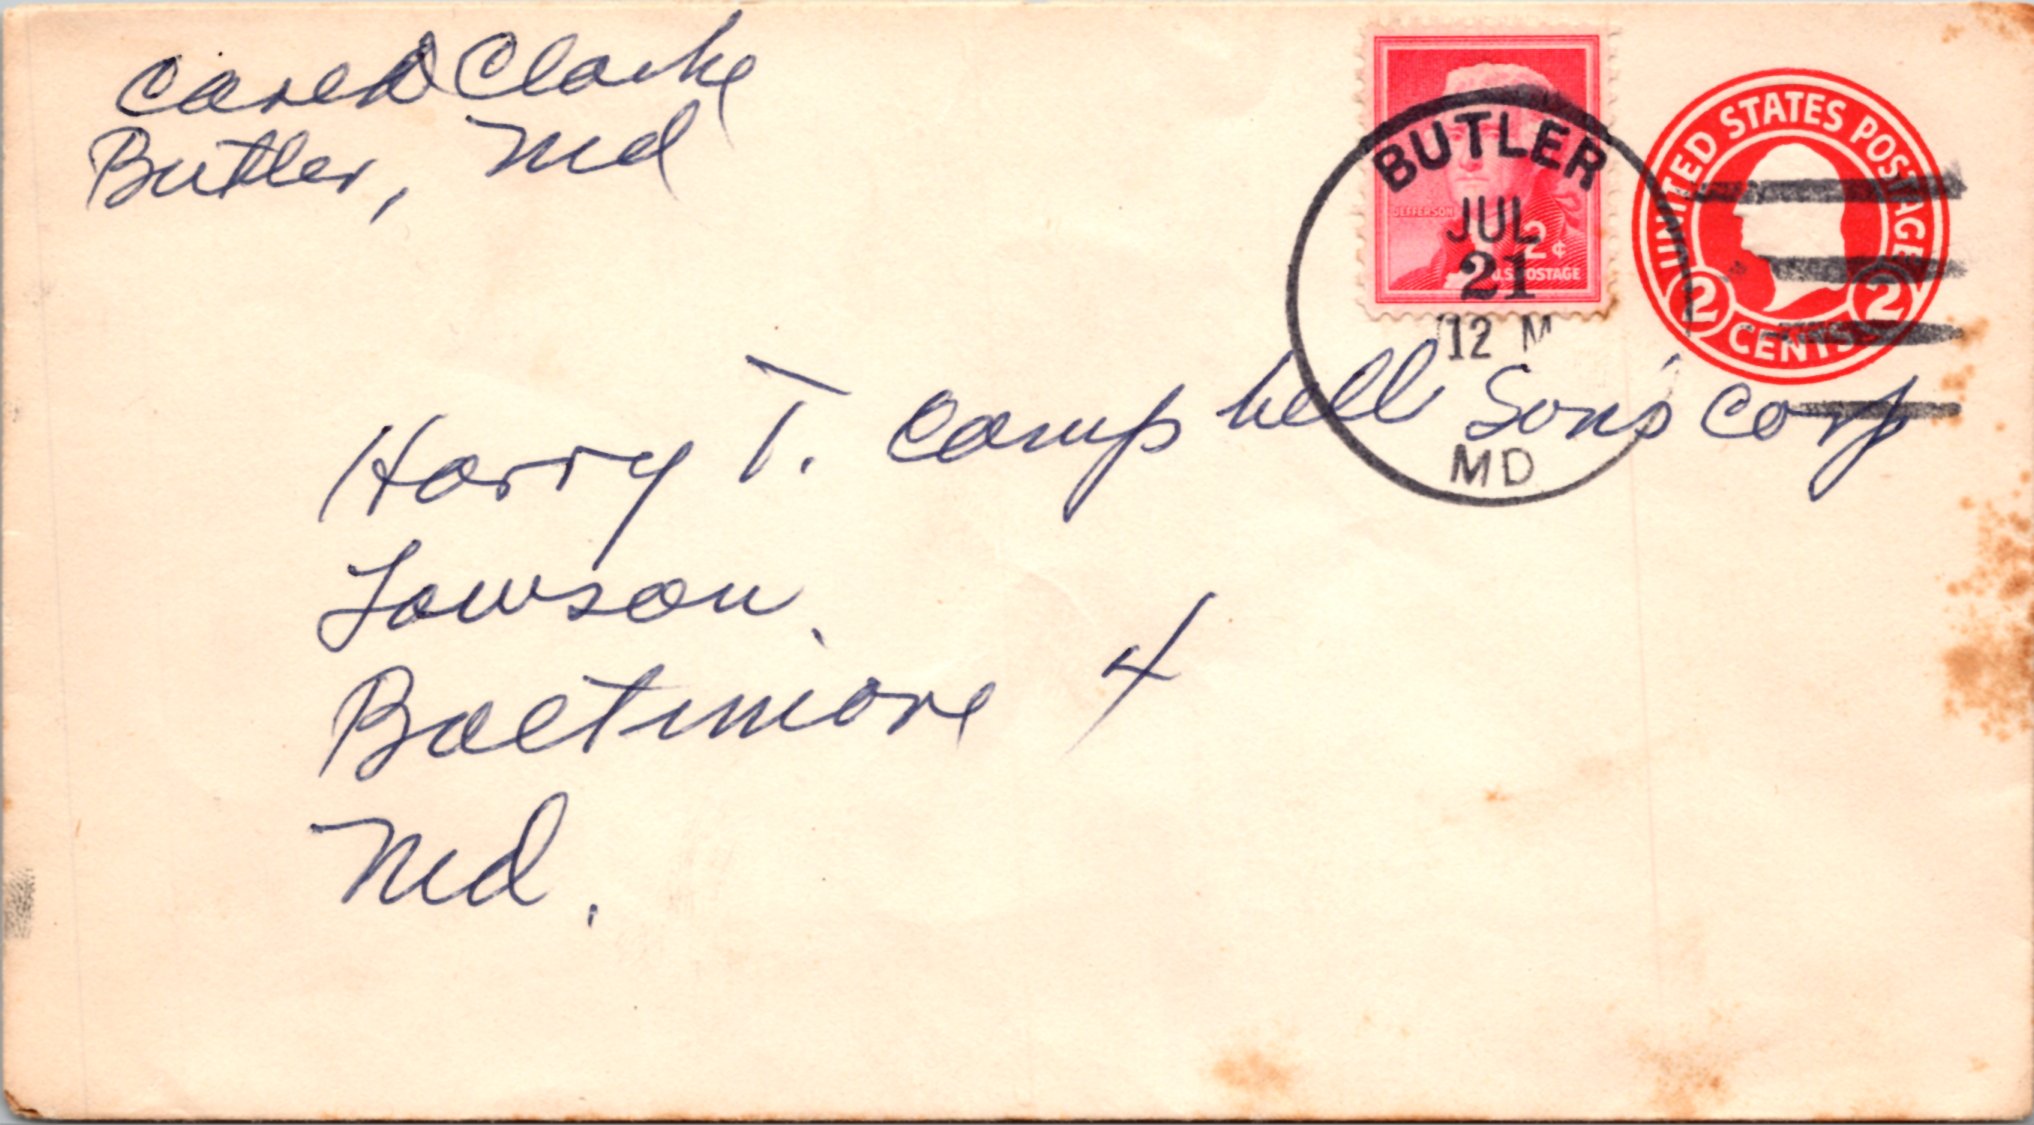 Carl D Clarke
Butler, Md
BUTLER
JUL
21
12 M
MD
JEFFERSON
2¢
U.S. POSTAGE
UNITED STATES POSTAGE
2 CENTS 2
Harry T. Campbell Son's Corp
Towson,
Baltimore 4
Md.